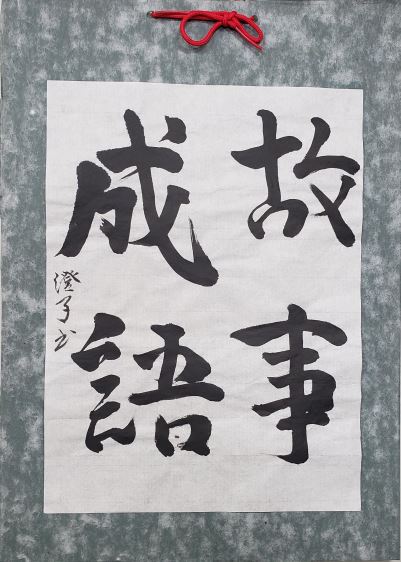 故事
成語
澄子书